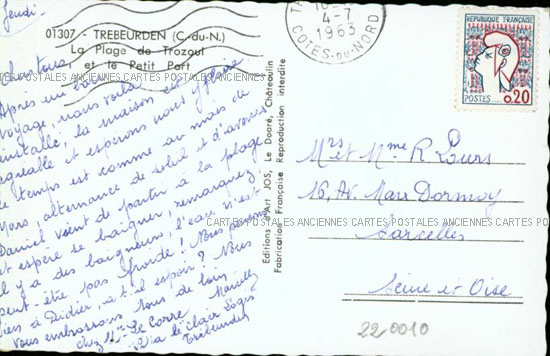 Jeudi
01307 - TREBEURDEN (C.-du-N.)
La Plage de Trozoul
et le Petit Port
Chers tous,
Après un bon
voyage, nous voilà
installés, la maison est
agréable et espérons nous y plaire
le temps est comme au mois de
Mars, alternance de soleil et d'averses
Daniel vient de partir à la plage
et espère se baigner, remarquez
il y a des baigneurs, l'eau n'est
peut-être pas froide! Nous
à Didier, a-t-il espoir? Nous
vous embrassons tous de loin.
Chez Mme Le Corre
Via le clair Logis
Trebeurden
4-7
1963
COTES-DU-NORD
REPUBLIQUE FRANÇAISE
POSTES 0,20
Editions d'Art JOS, Le Doaré, Châteaulin
Fabrication Française Reproduction interdite
CARTES POSTALES ANCIENNES CARTES POSTALES ANCIENNES CARTES POSTALES ANCIENNES CARTES POSTALES
Mrs et Mme R Lours
16, Av. Marx Dormoy
Sarcelles
Seine et Oise
220010